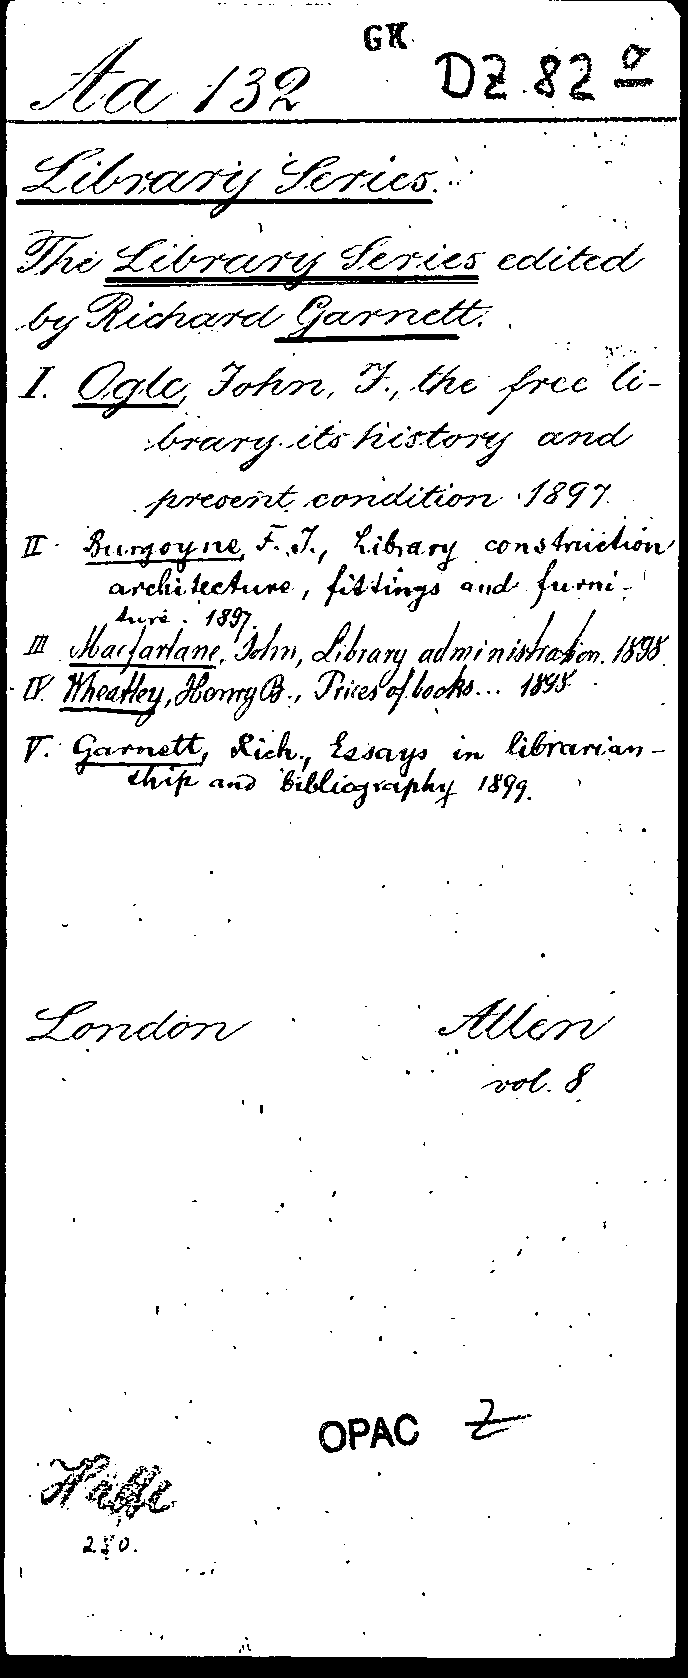 GK
Aa 132 DZ 82 a
Library Series.
The Library Series edited
by Richard Garnett.
I. Ogle, John, J., the free li-
brary its history and
present condition 1897
II Burgoyne, F. J., Library construction
architecture, fittings and furni-
ture. 1897.
III Macfarlane, John, Library administration. 1898.
IV. Wheatley, Henry B., Prices of books... 1898.
V. Garnett, Rich., Essays in librarian-
ship and bibliography 1899.
London Allen
vol. 8
OPAC Z
280.